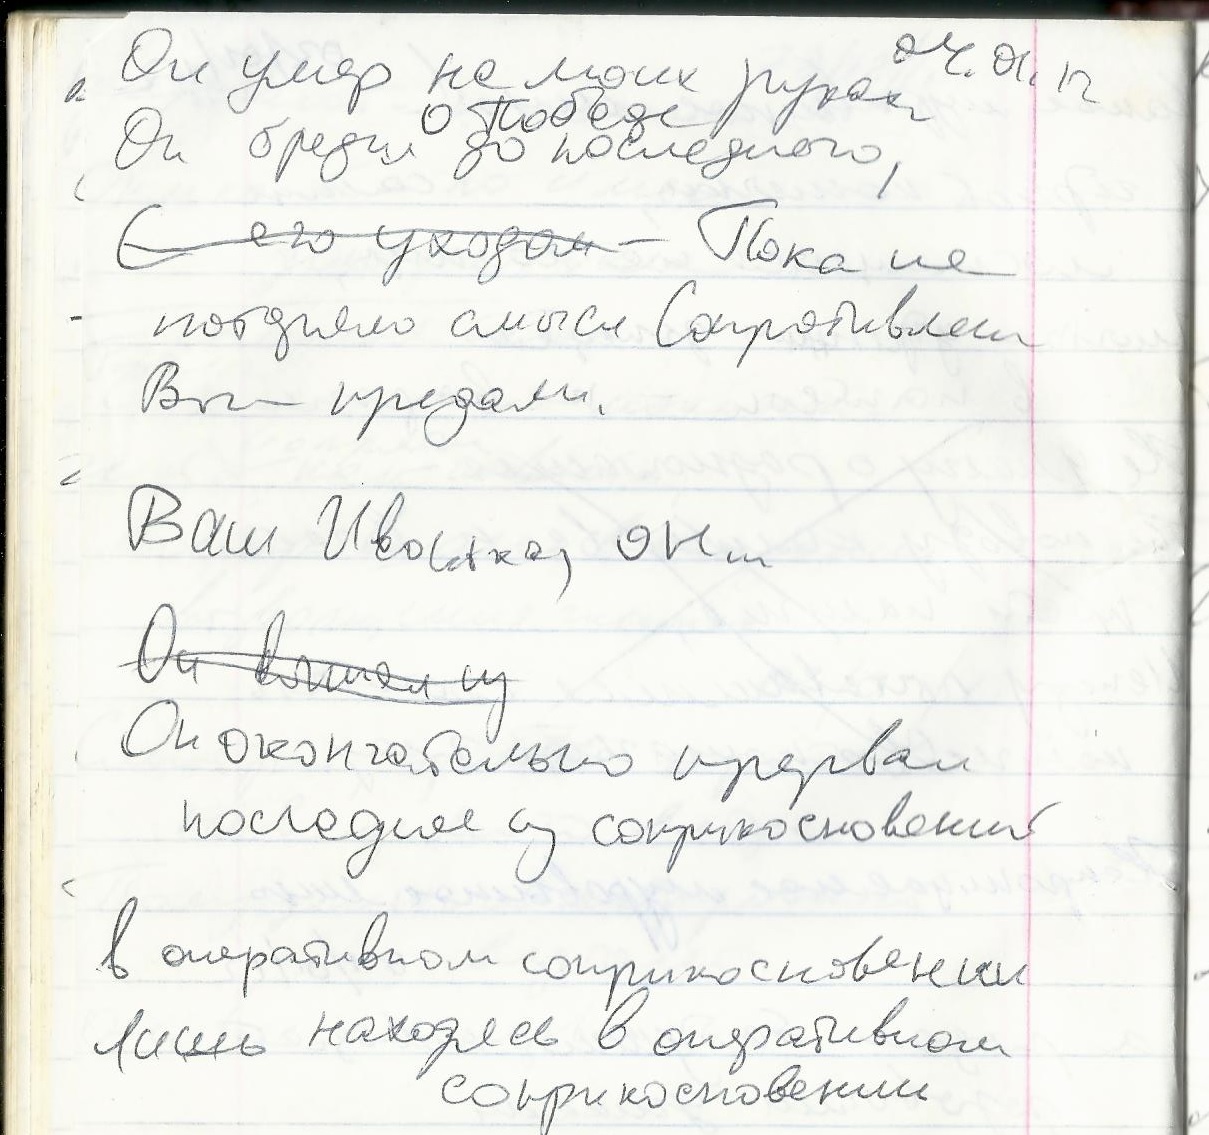 04.01.12
Он умер на моих руках
о Победе
Он бредил до последнего,
С его уходом – Пока не
смысл Сопротивлени
Вы предали.
Ваш Ивостка, он...
Он вышел из
Он окончательно прервал
последнее из соприкосновений
в оперативном соприкосновении
лишь находясь в оперативном
соприкосновении